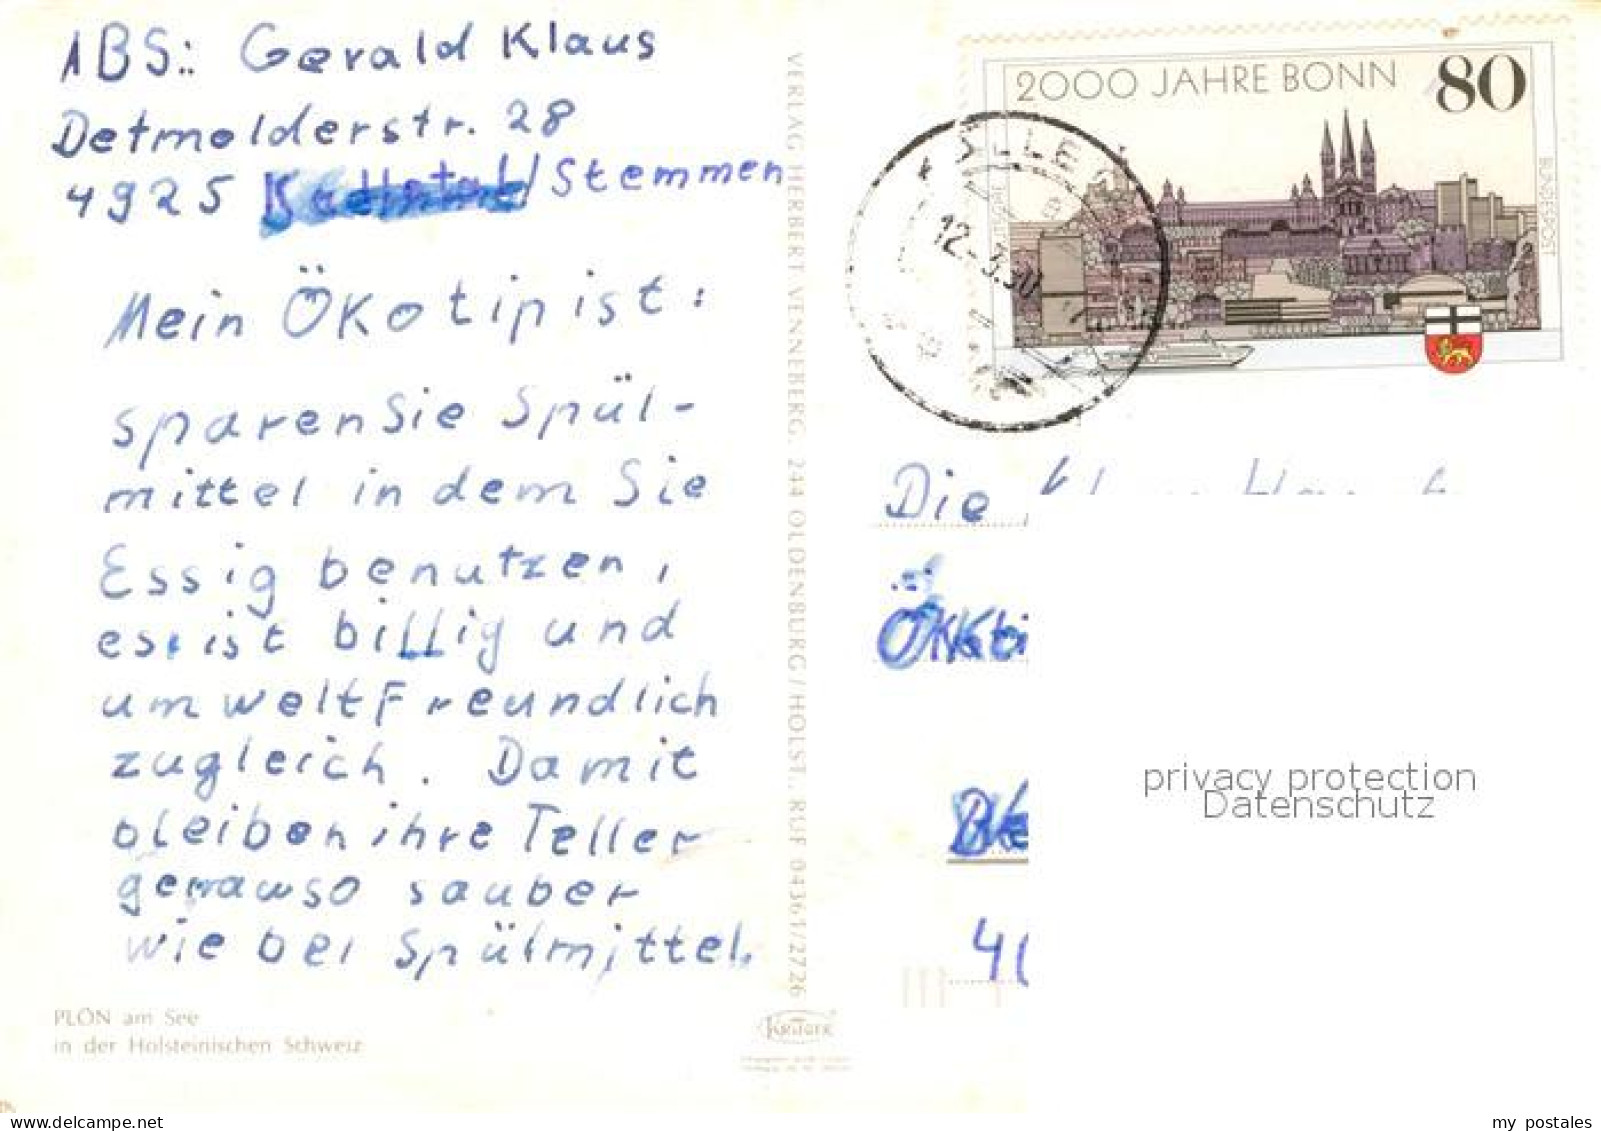 ABS.: Gerald Klaus
Detmolderstr. 28
4925 Kalletal/Stemmen
Mein Ökotip ist:
sparen Sie Spül-
mittel in dem Sie
Essig benutzen,
es ist billig und
umweltfreundlich
zugleich. Damit
bleiben ihre Teller
genauso sauber
wie bei Spülmittel.
PLÖN am See
in der Holsteinischen Schweiz
VERLAG HERBERT VENNEBERG, 244 OLDENBURG/HOLST., RUF 04361/2726
KRÜGER
2000 JAHRE BONN 80
DEUTSCHE
BUNDESPOST
12.-3.90
Die
Ökoti
4
privacy protection
Datenschutz
delcampe.net
my_postales